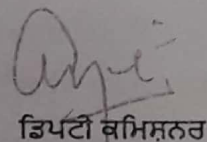 ਡਿਪਟੀ ਕਮਿਸ਼ਨਰ